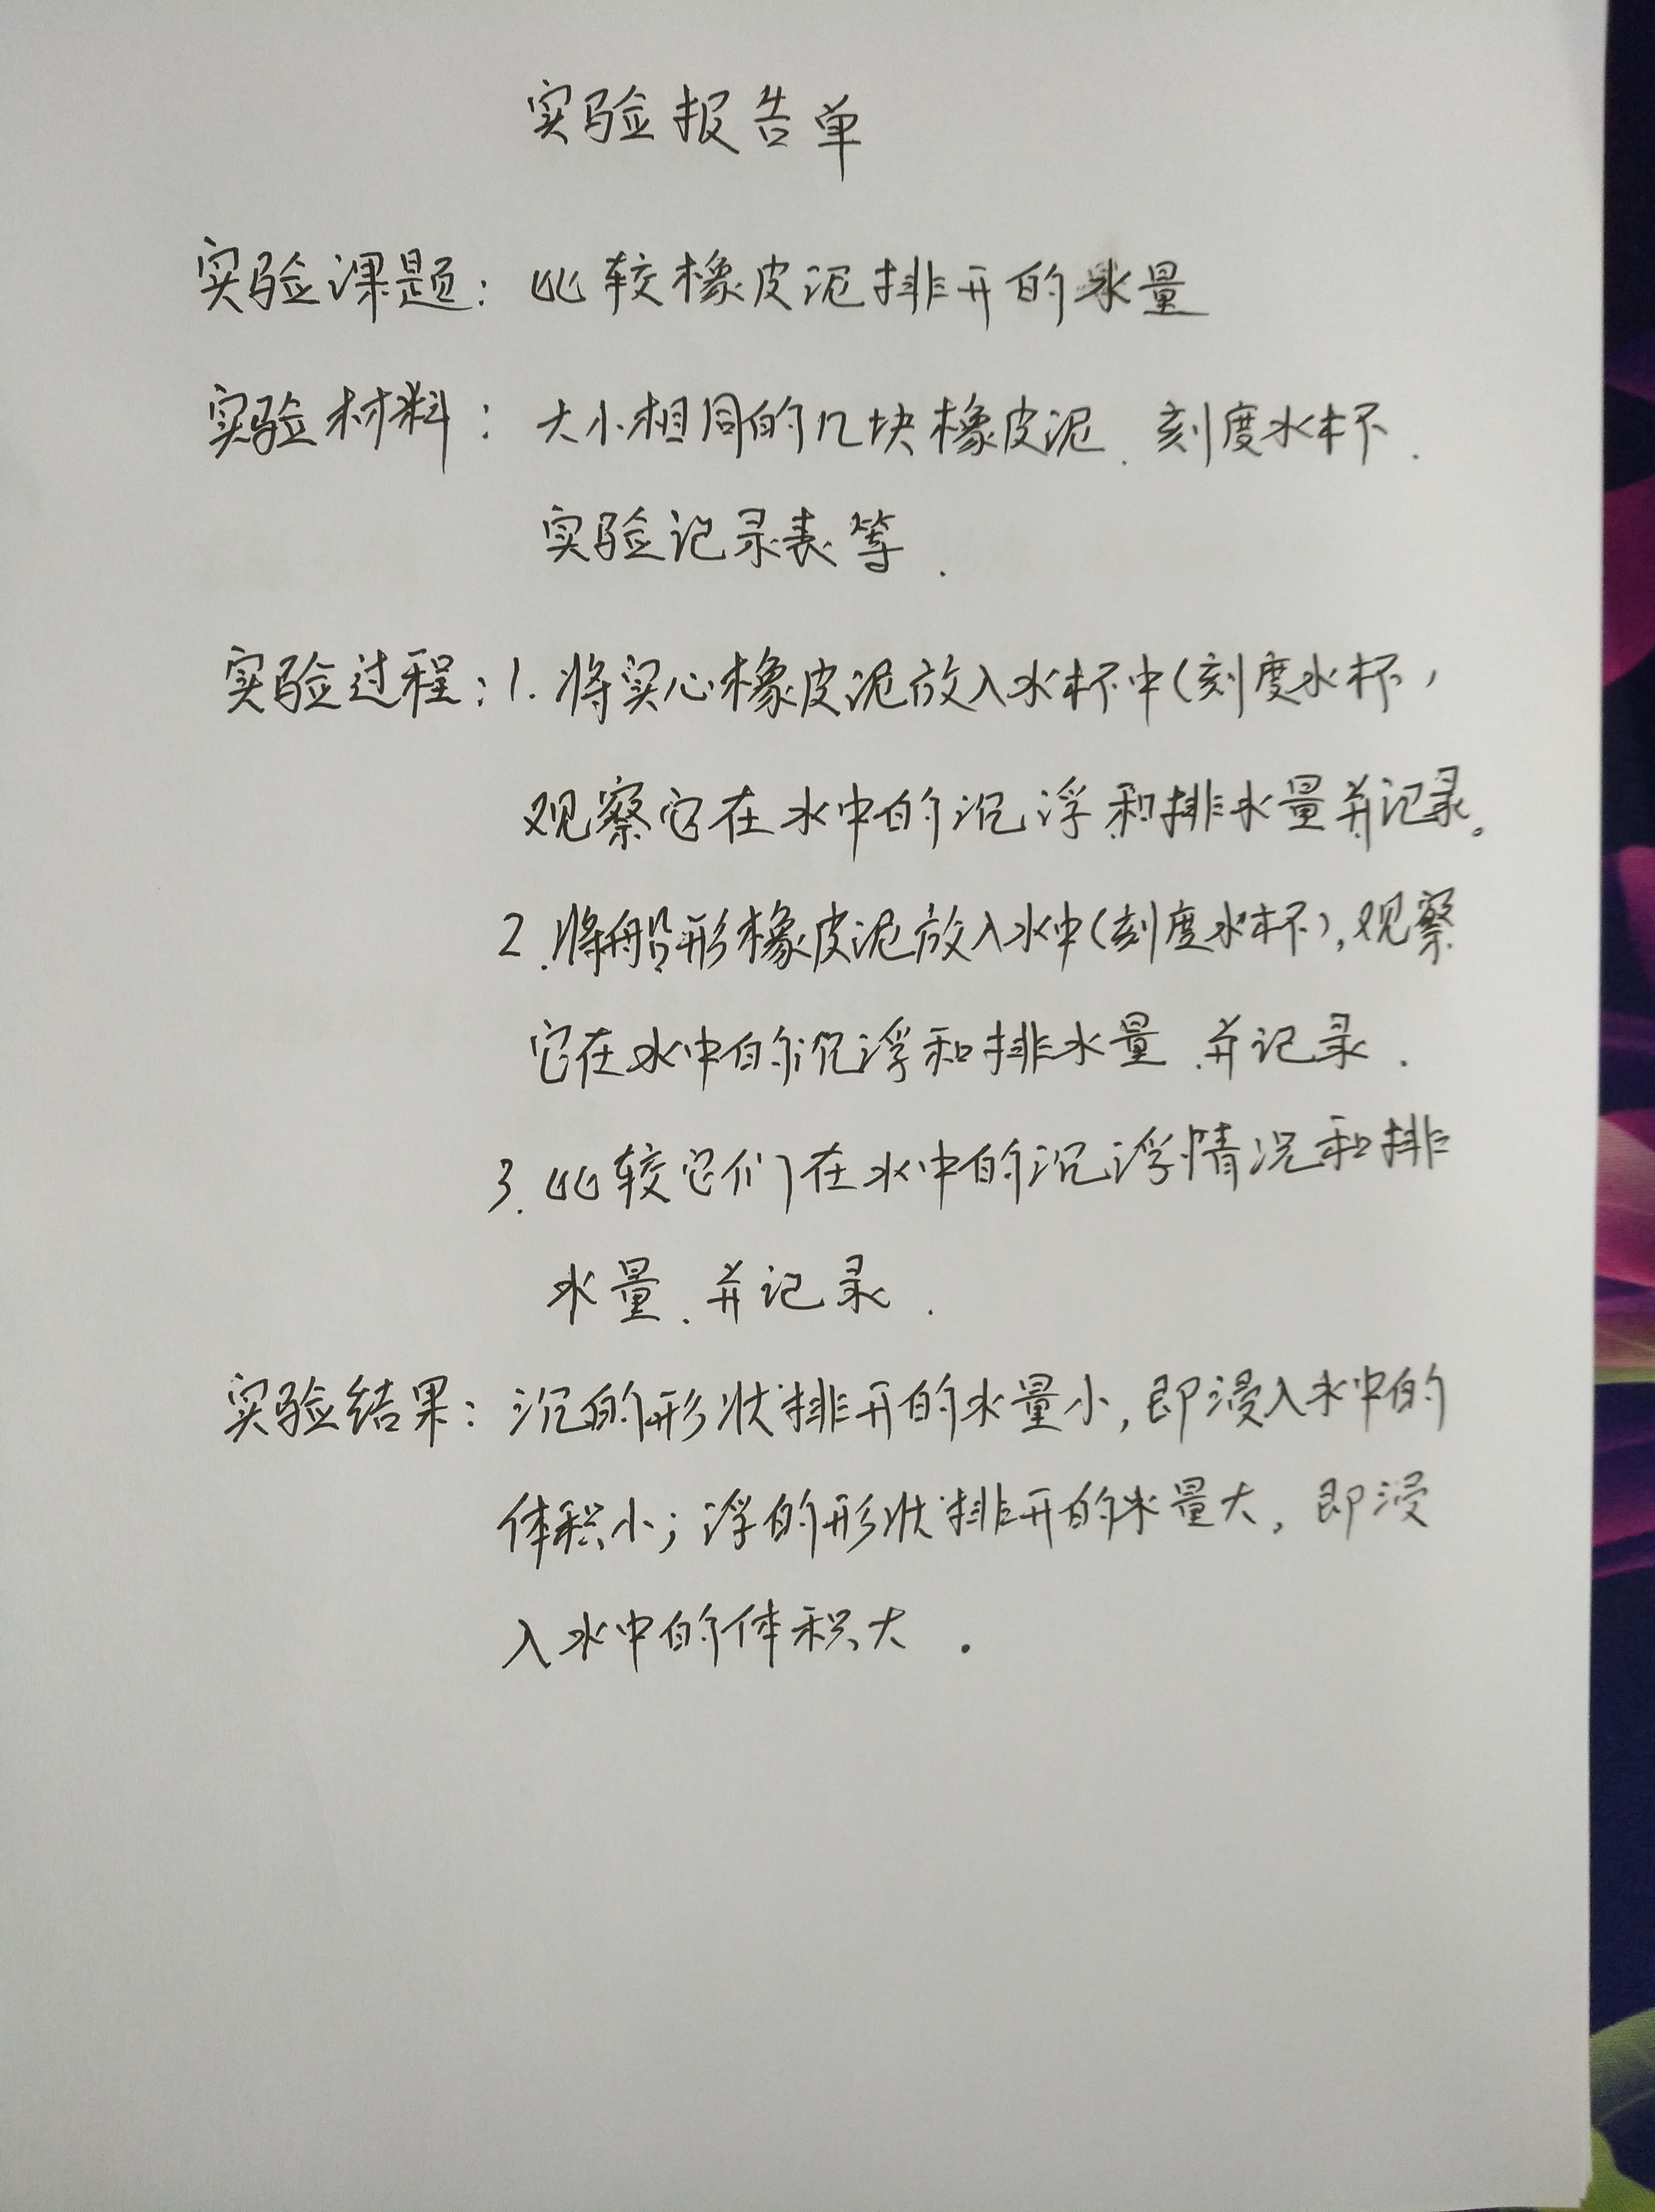 实验报告单
实验课题：比较橡皮泥排开的水量
实验材料：大小相同的几块橡皮泥、刻度水杯、
实验记录表等.
实验过程：1.将实心橡皮泥放入水杯中(刻度水杯，
观察它在水中的沉浮和排水量并记录。
2.将船形橡皮泥放入水中(刻度水杯),观察
它在水中的沉浮和排水量、并记录.
3.比较它们在水中的沉浮情况和排
水量、并记录.
实验结果：沉的形状排开的水量小,即浸入水中的
体积小；浮的形状排开的水量大,即浸
入水中的体积大.